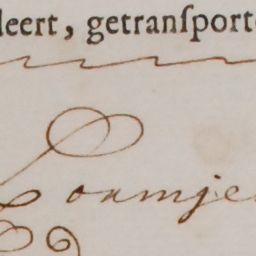 leert, getranſporte
Loamje